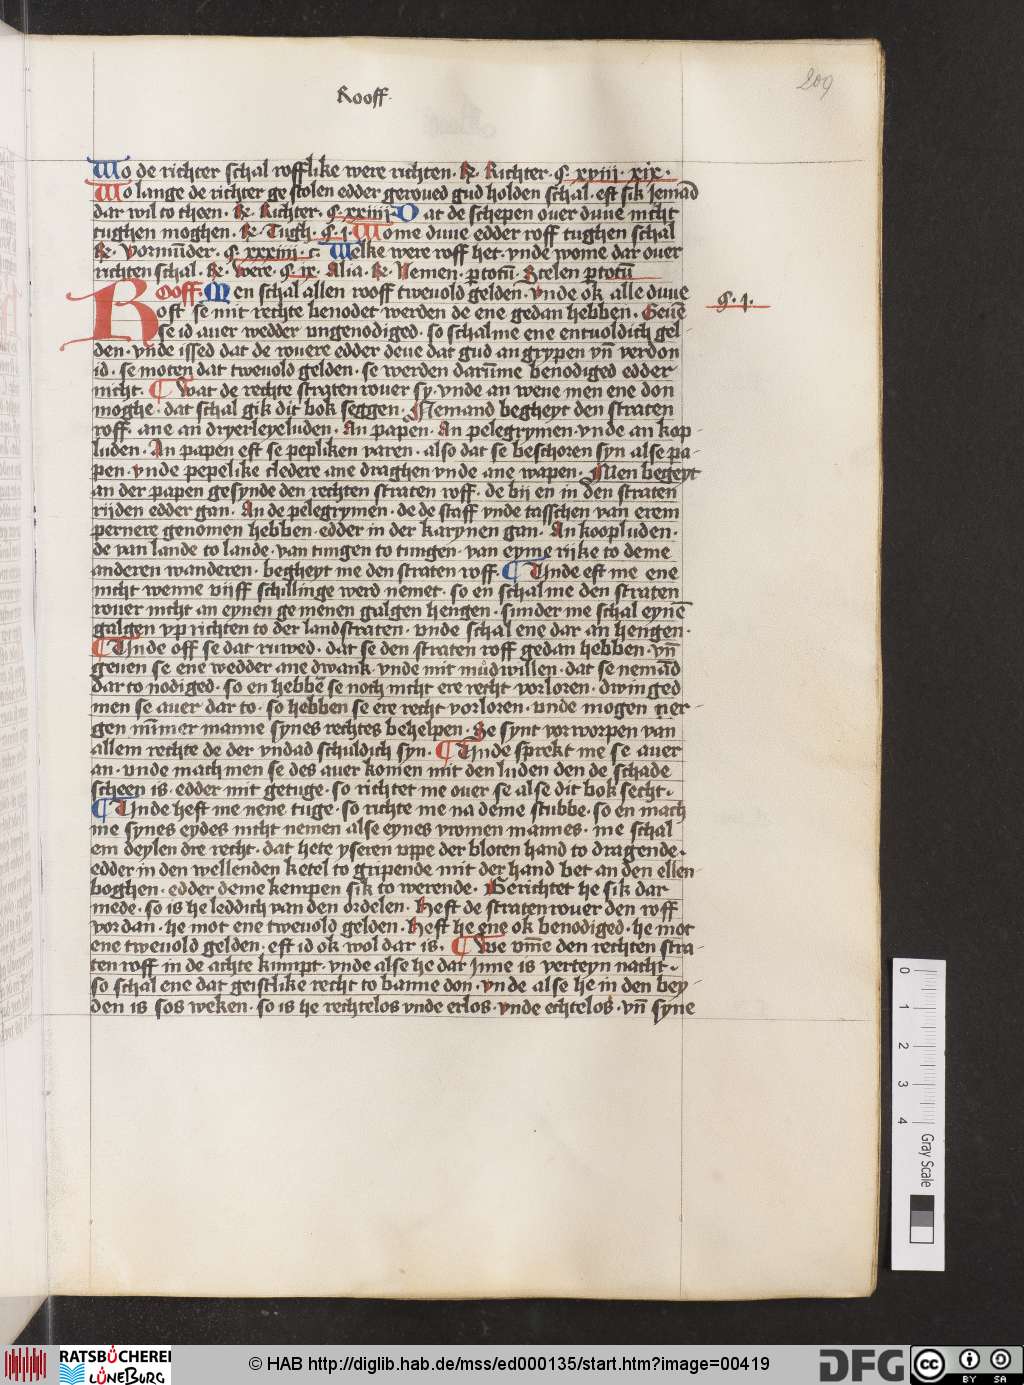 Rooff
209
Wo de richter schal rofflike were richten. R. Richter. §. xviii. xix.
Wo lange de richter gestolen edder geroued gud holden schal. eft sik Jemād
dar wil to theen. R. Richter. §. xxiiii. Dat de schepen ouer duue nicht
tughen moghen. R. Tugh. §. i. Wome duue edder roff tughen schal
R. Vormūder. §. xxxiiii. c. Welke were roff het. vnde wome dar ouer
richten schal. R. Were. §. ix. Alia. R. Nemen. ꝑ totū. Stelen ꝑ totū
Rooff. Men schal allen rooff tweuold gelden. vnde ok alle duue
oft se mit rechte benodet werden de ene gedan hebben. Geuē
§. i.
se id auer wedder ungenodiged. so schal me ene entuoldich gel-
den. vnde issed dat de rouere edder deue dat gud angrypen vn̄ verdon
id. se moten dat tweuold gelden. se werden darūme benodiged edder
nicht. Wat de rechte straten rouer sy. vnde an wene men ene don
moghe. dat schal gik dit bok seggen. Nemand begheyt den straten
roff. ane an dryerleye luden. An papen. An pelegrymen. vnde an kop-
luden. An papen eft se pepliken varen. also dat se beschoren syn alse pa-
pen. vnde pepelike cledere ane draghen vnde ane wapen. Men begeyt
an der papen gesynde den rechten straten roff. de bij en in den straten
rijden edder gan. An de pelegrymen. de de staff vnde tasschen van erem
pernere genomen hebben. edder in der karynen gan. An koopluden.
de van lande to lande. van tungen to tungen. van eyme rijke to deme
anderen wanderen. begheyt me den straten roff. Vnde eft me ene
nicht wenne vijff schillinge werd nemet. so en schal me den straten
rouer nicht an eynen gemenen galgen hengen. sunder me schal eynē
galgen vp richten to der landstraten. vnde schal ene dar an hengen.
Vnde off se dat ruwed. dat se den straten roff gedan hebben. vn̄
geuen se ene wedder ane dwank vnde mit můdwillen. dat se nemād
dar to nodiged. so en hebbē se noch nicht ere recht vorloren. dwinged
men se auer dar to. so hebben se ere recht vorloren. vnde mogen ner-
gen nūmer manne synes rechtes behelpen. Se synt vorworpen van
allem rechte de der vndad schuldich syn. Vnde sprekt me se auer
an. vnde mach men se des auer komen mit den luden den de schade
scheen is. edder mit getuge. so richtet me ouer se alse dit bok secht.
Vnde heft me nene tuge. so richte me na deme stubbe. so en mach
me synes eydes nicht nemen alse eynes vromen mannes. me schal
em deylen dre recht. dat hete yseren vppe der bloten hand to dragende.
edder in den wellenden ketel to gripende mit der hand bet an den ellen-
boghen. edder deme kempen sik to werende. Gerichtet he sik dar
mede. so is he leddich van den ordelen. Heft de straten rouer den roff
vordan. he mot ene tweuold gelden. Heft he ene ok benodiged. he mot
ene tweuold gelden. eft id ok wol dar is. Wie vm̄e den rechten stra-
ten roff in de achte kumpt. vnde alse he dar Inne is verteyn nacht.
so schal ene dat geistlike recht to banne don. vnde alse he in den bey-
den is sos weken. so is he rechtelos vnde erlos. vnde echtelos. vn̄ syne
0
1
2
3
4
Gray Scale
RATSBÜCHEREI
LÜNEBURG
© HAB http://diglib.hab.de/mss/ed000135/start.htm?image=00419
DFG
cc
BY
SA